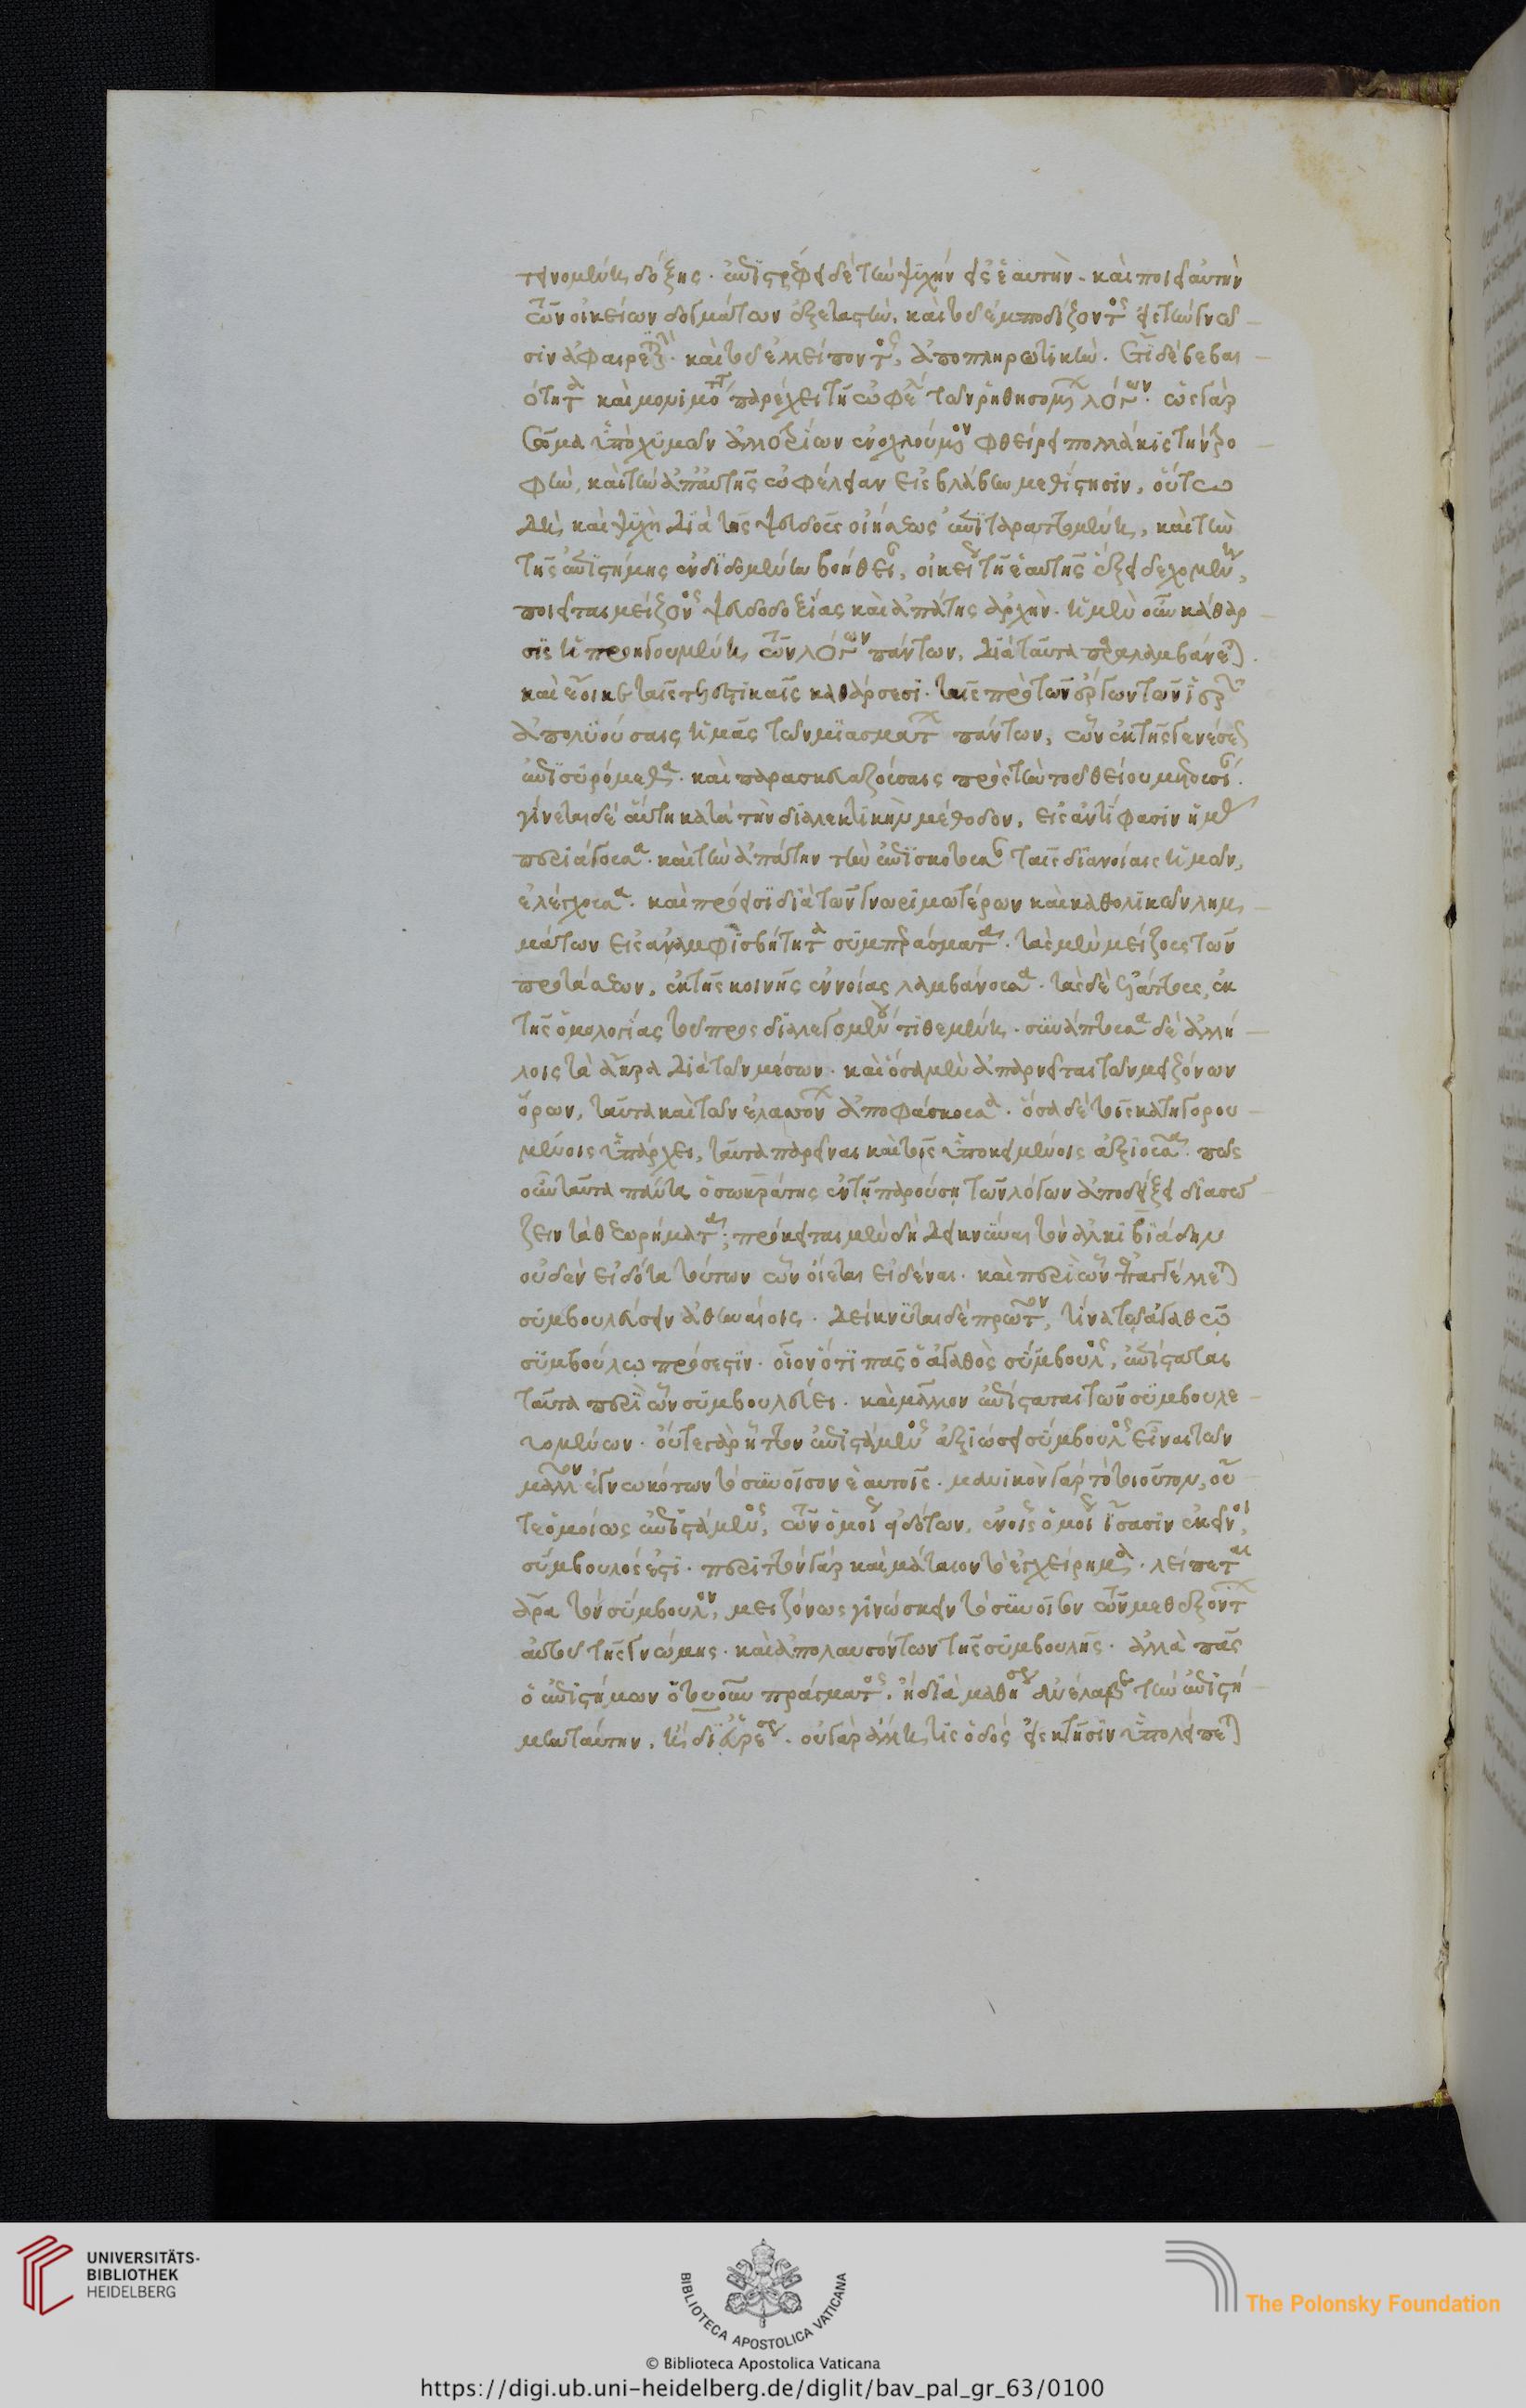 τεινομένης δόξης· ἐπιστρέφει δὲ τὴν ψυχὴν εἰς ἑαυτὴν· καὶ ποιεῖ αὐτὴν
τῶν οἰκείων δογμάτων ἐξεταστὴν, καὶ τοῦ ἐμποδίζοντος εἰς τὴν γνῶ
σιν ἀφαιρετικὴν· καὶ τοῦ ἐλλείποντος, ἀποπληρωτικὴν. ἔτι δὲ βεβαι
ότητα καὶ μονιμότητα παρέχει τῇ ὠφελείᾳ τῶν ῥηθησομένων λόγων· ὡς γὰρ
σῶμα ὑπὸ χυμῶν ἀλλοτρίων ἐνοχλούμενον φθείρει πολλάκις τὴν τρο
φὴν, καὶ τὴν ἀπ' αὐτῆς ὠφέλειαν εἰς βλάβην μεθίστησιν, οὕτω
δὴ καὶ ψυχὴ διὰ τῆς ψευδοῦς οἰήσεως ἐπιταραττομένη, καὶ τὴν
τῆς ἐπιστήμης ἐνδιδομένην βοήθειαν, οἰκείως τῇ ἑαυτῆς ἕξει δεχομένη,
ποιεῖται μείζονος ψευδοδοξίας καὶ ἀπάτης ἀρχὴν. ἡ μὲν οὖν κάθαρ
σις ἡ προηγουμένη τῶν λόγων πάντων, διὰ ταῦτα παραλαμβάνεται.
καὶ ἔοικε ταῖς τελεστικαῖς καθάρσεσι· ταῖς πρὸ τῶν ἔργων τῶν ἱερῶν
ἀπολυούσαις ἡμᾶς τῶν μιασμάτων πάντων, ὧν ἐκ τῆς γενέσεως
ἐπισυρόμεθα· καὶ παρασκευαζούσαις πρὸς τὴν τοῦ θείου μετουσίαν.
γίνεται δὲ αὕτη κατὰ τὴν διαλεκτικὴν μέθοδον, εἰς ἀντίφασιν ἡμᾶς
περιάγουσα· καὶ τὴν ἀπάτην τὴν ἐπισκοτοῦσαν ταῖς διανοίαις ἡμῶν,
ἐλέγχουσα· καὶ πρόεισι διὰ τῶν γνωριμωτέρων καὶ καθολικῶν λημ
μάτων εἰς ἀναμφισβήτητα συμπεράσματα· τὰς μὲν μείζους τῶν
προτάσεων, ἐκ τῆς κοινῆς ἐννοίας λαμβάνουσα· τὰς δὲ ἐλάττους, ἐκ
τῆς ὁμολογίας τοῦ προσδιαλεγομένου τιθεμένη· συνάπτουσα δὲ ἀλλή
λοις τὰ ἄκρα διὰ τῶν μέσων· καὶ ὅσα μὲν ἀπαρνεῖται τῶν μειζόνων
ὅρων, ταῦτα καὶ τῶν ἐλαττόνων ἀποφάσκουσα· ὅσα δὲ τοῖς κατηγορου
μένοις ὑπάρχει, ταῦτα παρεῖναι καὶ τοῖς ὑποκειμένοις ἀξιοῦσα· πῶς
οὖν ταῦτα πάντα ὁ σωκράτης ἐν τῇ παρούσῃ τῶν λόγων ἀποδείξει διασώ
ζει τὰ θεωρήματα; πρόκειται μὲν δὴ δεικνύναι τὸν ἀλκιβιάδην
οὐδὲν εἰδότα τούτων ὧν οἴεται εἰδέναι· καὶ περὶ ὧν ἐπαγγέλλεται
συμβουλεύσειν ἀθηναίοις. δείκνυται δὲ πρῶτον, τίνα τῷ ἀγαθῷ
συμβούλῳ πρόσεστιν· οἷον ὅτι πᾶς ὁ ἀγαθὸς σύμβουλος, ἐπίσταται
ταῦτα περὶ ὧν συμβουλεύει· καὶ μᾶλλον ἐπίσταται τῶν συμβουλευ
ομένων· οὔτε γὰρ ἧττον ἐπιστάμενος ἀξιώσει σύμβουλος εἶναι τῶν
μᾶλλον ἐγνωκότων τὸ συνοῖσον ἑαυτοῖς· μανικὸν γὰρ τὸ τοιοῦτον, οὔ
τε ὁμοίως ἐπιστάμενος, τῶν ὁμοίως εἰδότων, ἐν οἷς ὁμοίως ἴσασιν ἐκεῖνοι,
σύμβουλός ἐστι· περιττὸν γὰρ καὶ μάταιον τὸ ἐγχείρημα· λείπεται
ἄρα τὸν σύμβουλον, μειζόνως γινώσκειν τὸ συνοῖσον τῶν μεθεξόντων
αὐτοῦ τῆς γνώμης· καὶ ἀπολαυσόντων τῆς συμβουλῆς. ἀλλὰ πᾶς
ὁ ἐπιστήμων ὁτουοῦν πράγματος, ἢ διὰ μαθήσεως ἀνέλαβε τὴν ἐπιστή
μην ταύτην, ἢ δι' εὑρέσεως· οὐ γὰρ ἄλλη τις ὁδὸς εἰς κτῆσιν ὑπολείπεται
UNIVERSITÄTS-
BIBLIOTHEK
HEIDELBERG
BIBLIOTECA APOSTOLICA VATICANA
The Polonsky Foundation
© Biblioteca Apostolica Vaticana
https://digi.ub.uni-heidelberg.de/diglit/bav_pal_gr_63/0100